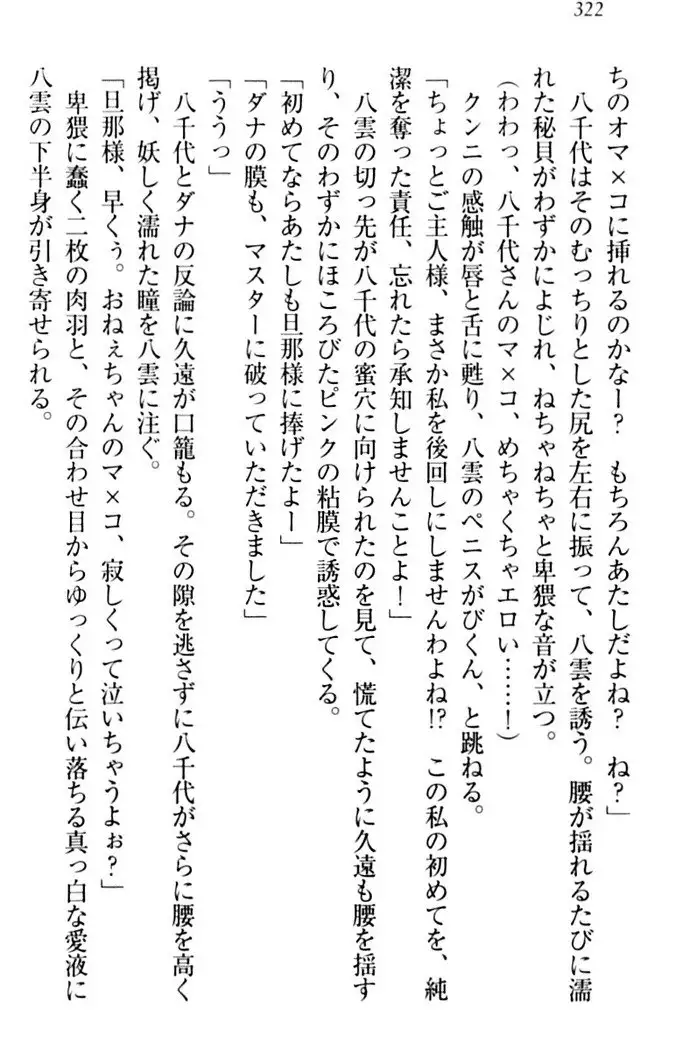 322
ちのオマ×コに挿れるのかなー？　もちろんあたしだよね？　ね？」
　八千代はそのむっちりとした尻を左右に振って、八雲を誘う。腰が揺れるたびに濡
れた秘貝がわずかによじれ、ねちゃねちゃと卑猥な音が立つ。
（わわっ、八千代さんのマ×コ、めちゃくちゃエロい……！）
　クンニの感触が唇と舌に甦り、八雲のペニスがびくん、と跳ねる。
「ちょっとご主人様、まさか私を後回しにしませんわよね!?　この私の初めてを、純
潔を奪った責任、忘れたら承知しませんことよ！」
　八雲の切っ先が八千代の蜜穴に向けられたのを見て、慌てたように久遠も腰を揺す
り、そのわずかにほころびたピンクの粘膜で誘惑してくる。
「初めてならあたしも旦那様に捧げたよー」
「ダナの膜も、マスターに破っていただきました」
「ううっ」
　八千代とダナの反論に久遠が口籠もる。その隙を逃さずに八千代がさらに腰を高く
掲げ、妖しく濡れた瞳を八雲に注ぐ。
「旦那様、早くぅ。おねぇちゃんのマ×コ、寂しくって泣いちゃうよぉ？」
　卑猥に蠢く二枚の肉羽と、その合わせ目からゆっくりと伝い落ちる真っ白な愛液に
八雲の下半身が引き寄せられる。